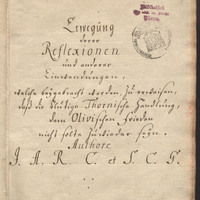 Erwegung
derer
Reflexionen
und anderer
Einwendungen,
welche beygebracht worden, zu erweisen,
daß die blutige Thornische Handlung,
dem Olivischen Frieden
nicht solte zuwieder seyn.
Authore
J. A. R. C. et S. C. G.